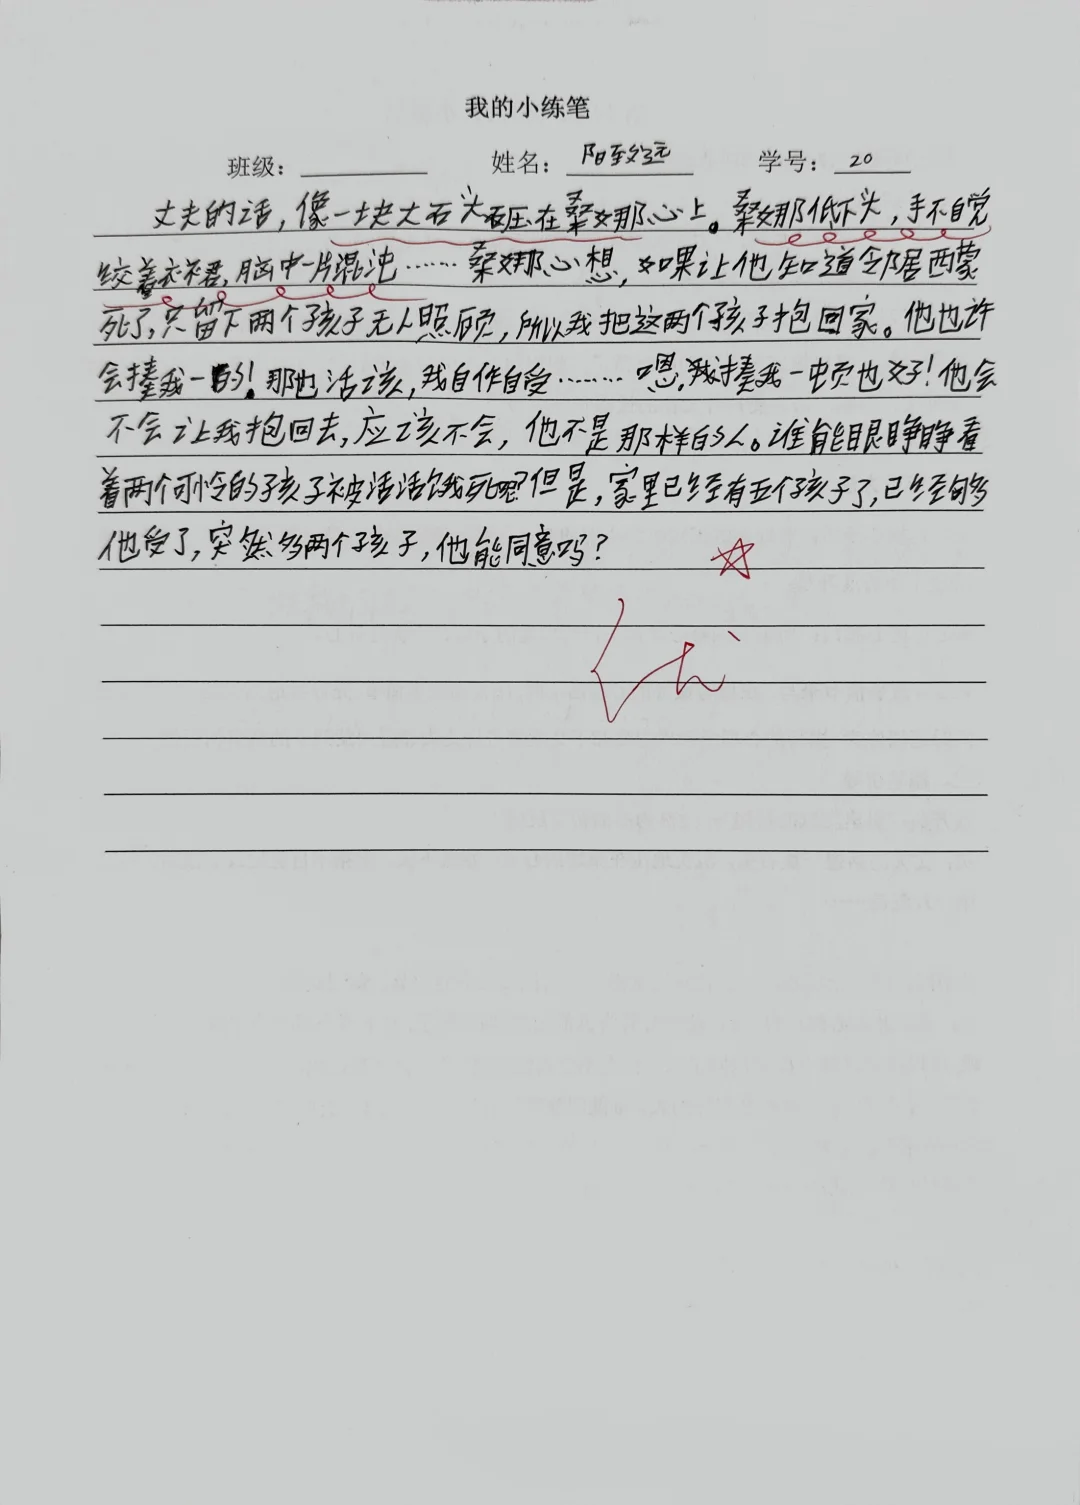 我的小练笔
班级： 姓名：阳致远 学号：20
丈夫的话，像一块大石头压在桑娜心上。桑娜低下头，手不自觉
绞着衣裙，脑中一片混沌……桑娜心想，如果让他知道邻居西蒙
死了，只留下两个孩子无人照顾，所以我把这两个孩子抱回家。他也许
会揍我一的！那也活该，我自作自受……嗯，我揍我一顿也好！他会
不会让我抱回去，应该不会，他不是那样的人。谁能眼睁睁看
着两个可怜的孩子被活活饿死呢但是，家里已经有五个孩子了，已经够
他受了，突然多两个孩子，他能同意吗？
优